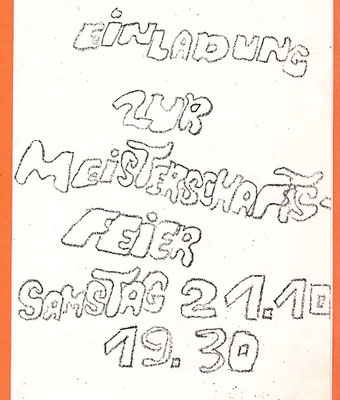 EINLADUNG
ZUR
MEISTERSCHAFTS-
FEIER
SAMSTAG 21.10
19.30